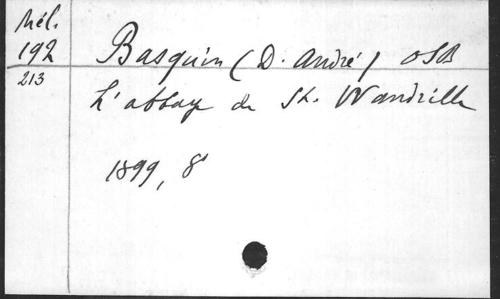 Mél.
192
213
Basquin (D. André) OSB
L'abbaye de St. Wandrille
1899, 8°